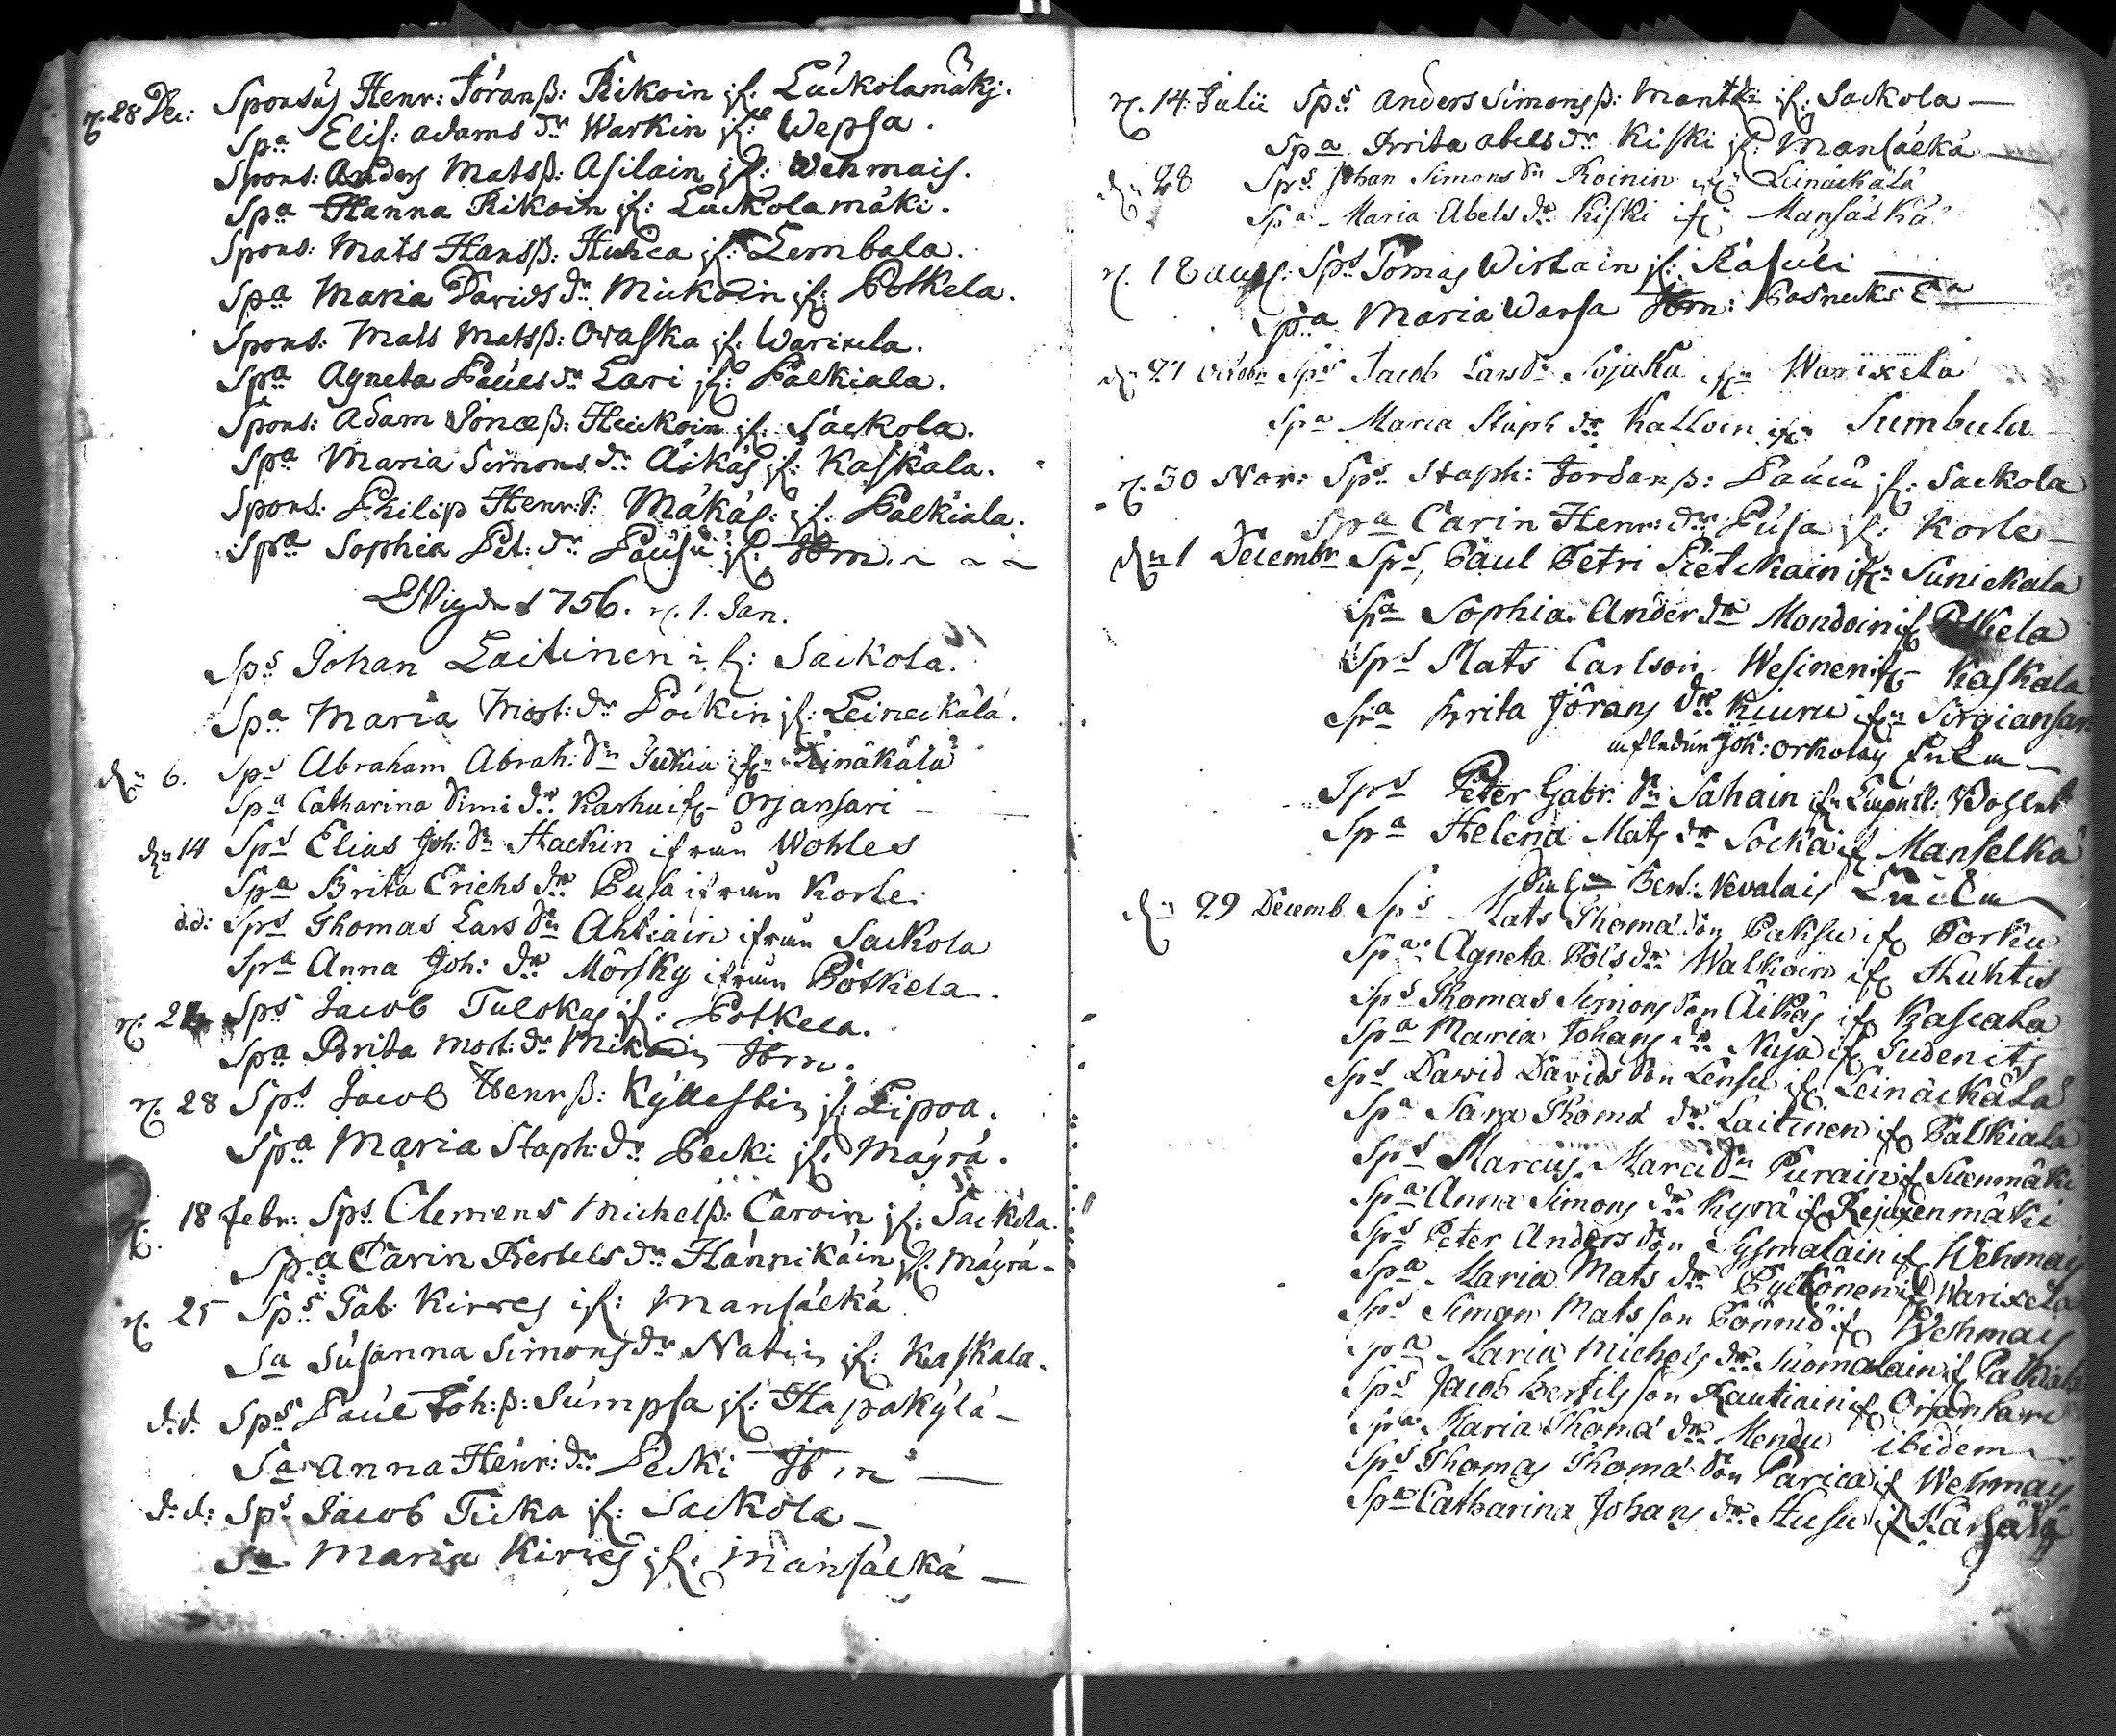 d. 28 Dec: Sponsus Henr: Jöranß: Rikoin if: Luckolamäki.
Spa Elis: adams dr Warkin if: Wepsa.
Spons: Anders Matsß: Asilain if: Wehmais.
Spa Hanna Rikoin if: Luckolamäki.
Spons: Mats Hansß: Huhca if: Lembala.
Spa Maria Davids dr Mickoin if: Potkela.
Spons: Mats Matsß: Oraska if: Warixela.
Spa Agneta Påuls dr Lari if: Palkiala.
Spons: Adam Jonæß: Huckoin if: Sackola.
Spa Maria Simons dr Äikäs if: Kaskala.
Spons: Philip Henr: ß: Mäkäs: if: Palkiala.
Spa Sophia Pet: dr Pausu if: Ibm.
Wigde 1756. d. 1. Jan.
Sps Johan Laitinen if: Sackola.
Spa Maria Mort: dr Pöckin if: Leineckälä.
dn 6. Sps Abraham Abrah: Sn Juhia ifn Leinäkälä
Spa Catharina Simi dr Karhu if Orjansari
dn 14 Sps Elias Joh: Sn Hackin ifrån Wohles
Spa Brita Erichs dr Pusa ifrån Korle.
d.d: Sps Thomas Lars Sn Ahtiain ifrån Sackola
Spa Anna Joh: dr Mörsky ifrån Potkela.
d. 24 Sps Jacob Tulokas if: Potkela.
Spa Brita Mort: dr Mikoin Ibm.
d. 28 Sps Jacob Henrß: Kyllestin if: Lipoa.
Spa Maria Staph: dr Pecki if: Mäyrä.
d. 18 febr: Sps Clemens Michelß: Caroin if: Sackola.
Spa Carin Bertels dr Hännikäin if: Mäyrä
d. 25 Sps Gab: Kirwes if: Mansälkä
Sa Susanna Simons dr Natin if: Kaskala.
d.d. Sps Paul Joh: ß: Sumpsa if: Hapakylä
Sa Anna Henr: dr Pecki Ibm
d.d: Sps Jacob Ticka if: Sackola
Sa Maria Kirwes if: Mansälkä
d. 14: Julii Sps Anders Simonsß: if: Sackola
Spa Brita Abels dr Kiski if: Mansälkä
dn 28 Sps Johan Simons Sn Roinin ifn Leinäckälä
Spa Maria Abels dr Kiski if Mansälkä
d. 18 aug: Sps Tomas Wirtain if: Räsüli
Spa Maria Warsa Ibm:
dn 21 Octobr Sps Jacob Lars Sn ifn Warixela
Spa Maria Staph dr Kalloin ifn Sumbula
d. 30 Nov: Sps Staph: Jordanß: Pauu if: Sackola
Spa Carin Henr: dr Pusa if: Korle
dn 1 Decembr Sps Påul Petri Pietikain ifn Suniekala
Spa Sophia Ander dr Mondoin if Potkela
Sps Mats Carlson Wesinen if Kaskala
Spa Brita Jörans dr Kiuru ifn Sirgiansar
Joh: Orkolas Enka
Sps Peter Gabr: Sn Sahain ifn
Spa Helena Mats dr Socka if Manselkä
Bert: Nevalais Enka
dn 29 Decemb Sps Mats Thomæ Son Paksu if Porku
Spa Agneta Pols dr Walkoin if Huhtis
Sps Thomas Simons Son Äikäs if Kascala
Spa Maria Johans dr Nuja if Sudenits
Sps David Davids Son Lensu if Leinäckälä
Spa Sara Thomæ dr Laitinen if Palkiala
Sps Marcus Marci Sn Purain if Suenmäki
Spa Anna Simons dr Kyrä if Rejusenmäki
Sps Peter Anders Son Sysmäläin if Wehmais
Spa Maria Mats dr Pyllönen if Warixela
Sps Simon Mats son Pönniö if Wehmais
Spa Maria Michels dr Suomalain if Palkiala
Sps Jacob Bertils son Rautiain if Orjansari
Spa Maria Thomæ dr Mendu ibidem
Sps Thomas Thomæ Son Parica if Wehmais
Spa Catharina Johans dr Husu if Karsälä